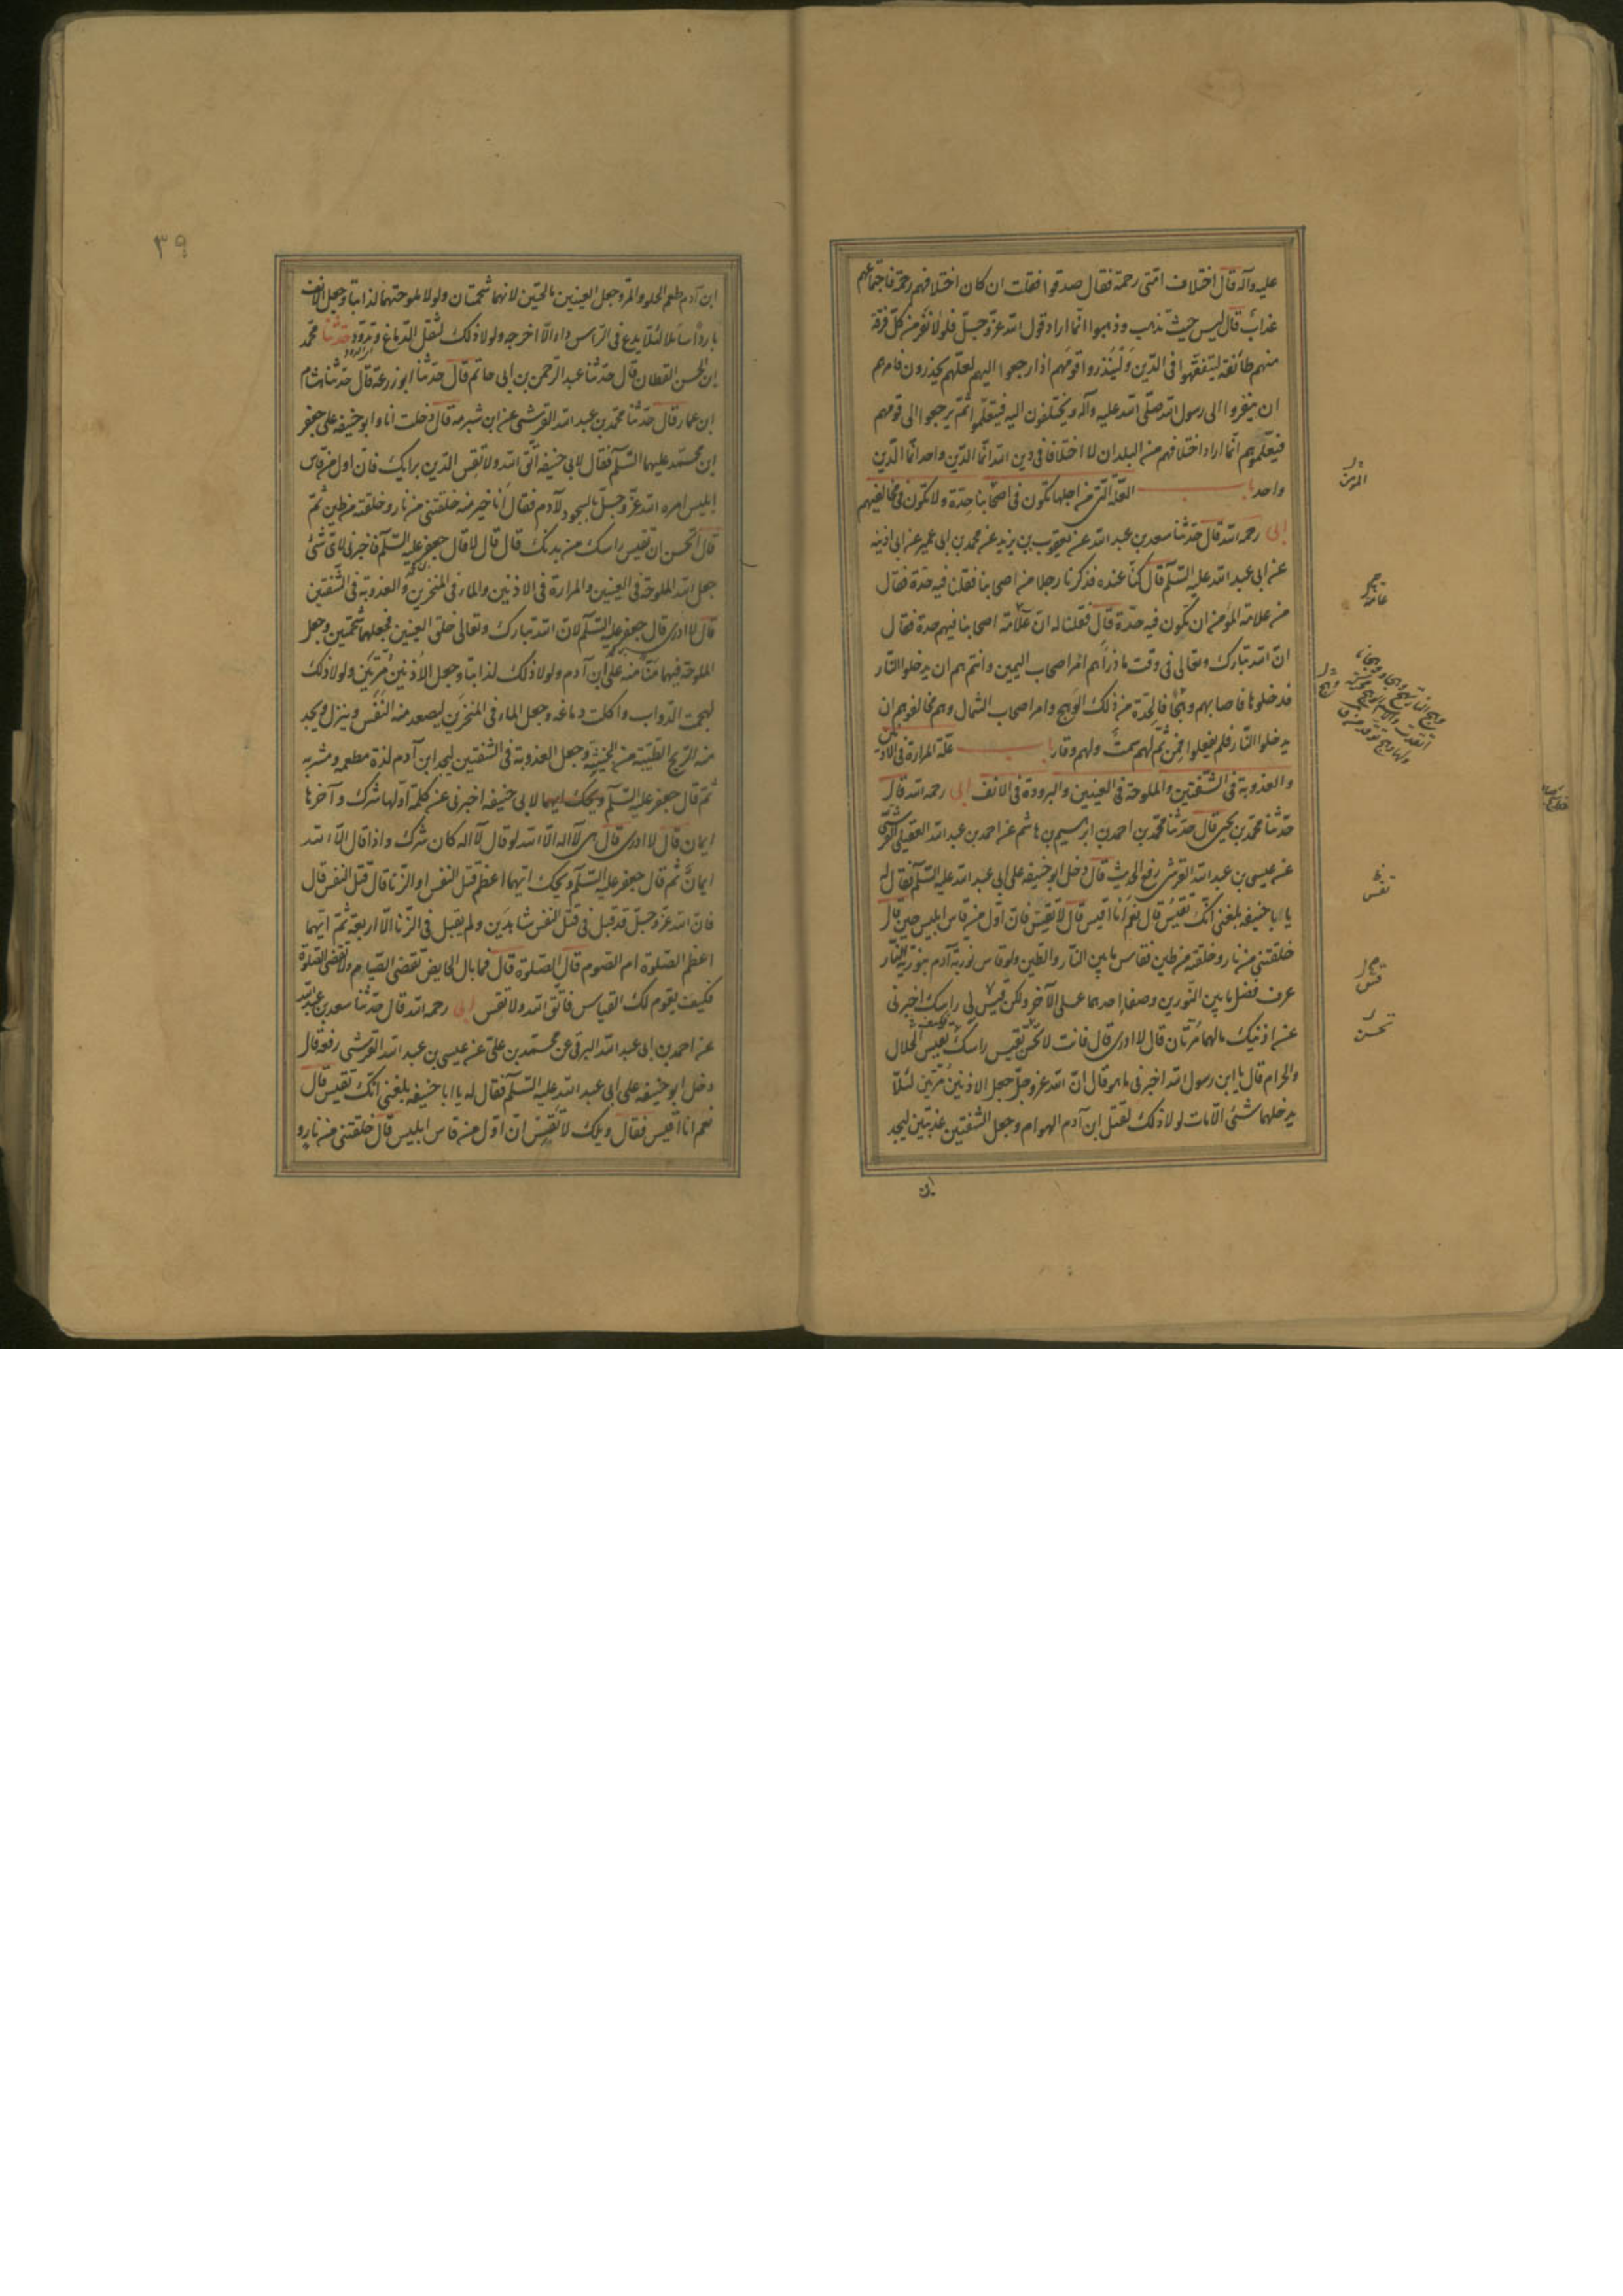 عليه وآله قال اختلاف امتى رحمة فقال صدقوا فقلت ان كان اختلافهم رحمة فاجتماعهم
عذاب قال ليس حيث تذهب وذهبوا انما اراد قول الله عز وجل فلولا نفر من كل فرقة
منهم طائفة ليتفقهوا فى الدين ولينذروا قومهم اذا رجعوا اليهم لعلهم يحذرون فامرهم
ان ينفروا الى رسول الله صلى الله عليه وآله ويختلفون اليه فيتعلموا ثم يرجعوا الى قومهم
فيعلموهم انما اراد اختلافهم من البلدان لا اختلافا فى دين الله انما الدين واحد انما الدين
واحد باب العلة التى من اجلها تكون فى اصحابنا حدة ولا تكون فى مخالفيهم
ابى رحمه الله قال حدثنا سعد بن عبد الله عن يعقوب بن يزيد عن محمد بن ابى عمير عن ابى اذينه
عن ابى عبد الله عليه السلم قال كنا عنده فذكرنا رجلا من اصحابنا فقلنا فيه حدة فقال
من علامة المؤمن ان تكون فيه حدة قال فقلنا له ان علامة اصحابنا فيهم حدة فقال
ان الله تبارك وتعالى فى وقت ما ذرأهم امر اصحاب اليمين وانتم هم ان يدخلوا النار
فدخلوها فاصابهم وهج فالحدة من ذلك الوهج وامر اصحاب الشمال وهم مخالفوهم ان
يدخلوا النار فلم يفعلوا فمن ثم لهم سمت ولهم وقار باب علة المرارة فى الاذنين
والعذوبة فى الشفتين والملوحة فى العينين والبرودة فى الانف ابى رحمه الله قال
حدثنا محمد بن يحيى قال حدثنا محمد بن احمد بن ابرهيم بن هاشم عن احمد بن عبد الله العقيلى القرشى
عن عيسى بن عبد الله القرشى رفع الحديث قال دخل ابو حنيفه على ابى عبد الله عليه السلم فقال له
يا ابا حنيفه بلغنى انك تقيس قال نعم انا اقيس قال لا تقيس فان اول من قاس ابليس حين قال
خلقتنى من نار وخلقته من طين فقاس ما بين النار والطين ولو قاس نورية آدم بنورية النار
عرف فضل ما بين النورين وصفا احدهما على الآخر ولكن قس لى راسك اخبرنى
عن اذنيك ما لهما مرتان قال لا ادرى قال فانت لا تحسن تقيس راسك فكيف تقيس الحلال
والحرام قال يا ابن رسول الله اخبرنى ما هو قال ان الله عز وجل جعل الاذنين مرتين لئلا
يدخلهما شئ الا مات لولا ذلك لقتل ابن آدم الهوام وجعل الشفتين عذبتين ليجد
ابن
تقس
تحسن
٣٩
ابن آدم طعم الحلو والمر وجعل العينين مالحتين لانهما شحمتان ولولا ملوحتهما لذابتا وجعل الانف
باردا سائلا لئلا يدع فى الراس داء الا اخرجه ولولا ذلك لثقل الدماغ وتدود حدثنا محمد
ابن الحسن القطان قال حدثنا عبد الرحمن بن ابى حاتم قال حدثنا ابو زرعة قال حدثنا هشام
ابن عمار قال حدثنا محمد بن عبد الله القرشى عن ابن شبرمة قال دخلت انا وابو حنيفه على جعفر
ابن محمد عليهما السلم فقال لابى حنيفه اتق الله ولا تقس الدين برايك فان اول من قاس
ابليس امره الله عز وجل بالسجود لآدم فقال انا خير منه خلقتنى من نار وخلقته من طين ثم
قال اتحسن ان تقيس راسك من بدنك قال قال لا قال جعفر عليه السلم فاخبرنى لاى شئ
جعل الله الملوحة فى العينين والمرارة فى الاذنين والماء فى المنخرين والعذوبة فى الشفتين
قال لا ادرى قال جعفر عليه السلم لان الله تبارك وتعالى خلق العينين فجعلهما شحمتين وجعل
الملوحة فيهما منا منه على ابن آدم ولولا ذلك لذابتا وجعل الاذنين مرتين ولولا ذلك
لهجمت الدواب واكلت دماغه وجعل الماء فى المنخرين ليصعد منه النفس وينزل ويجد
منه الريح الطيبة من الخبيثة وجعل العذوبة فى الشفتين ليجد ابن آدم لذة مطعمه ومشربه
ثم قال جعفر عليه السلم لابى حنيفه اخبرنى عن كلمة اولها شرك وآخرها
ايمان قال لا ادرى قال هى لا اله الا الله لو قال لا اله كان شرك واذا قال الا الله
ايمان ثم قال جعفر عليه السلم ويحك ايهما اعظم قتل النفس او الزنا قال قتل النفس قال
فان الله عز وجل قد قبل فى قتل النفس شاهدين ولم يقبل فى الزنا الا اربعة ثم ايهما
اعظم الصلوة ام الصوم قال الصلوة قال فما بال الحايض تقضى الصيام ولا تقضى الصلوة
فكيف يقوم لك القياس فاتق الله ولا تقس ابى رحمه الله قال حدثنا سعد بن عبد الله
عن احمد بن ابى عبد الله البرقى عن محمد بن على عن عيسى بن عبد الله القرشى رفعه قال
دخل ابو حنيفه على ابى عبد الله عليه السلم فقال له يا ابا حنيفه بلغنى انك تقيس قال
نعم انا اقيس فقال ويلك لا تقس ان اول من قاس ابليس قال خلقتنى من نار و